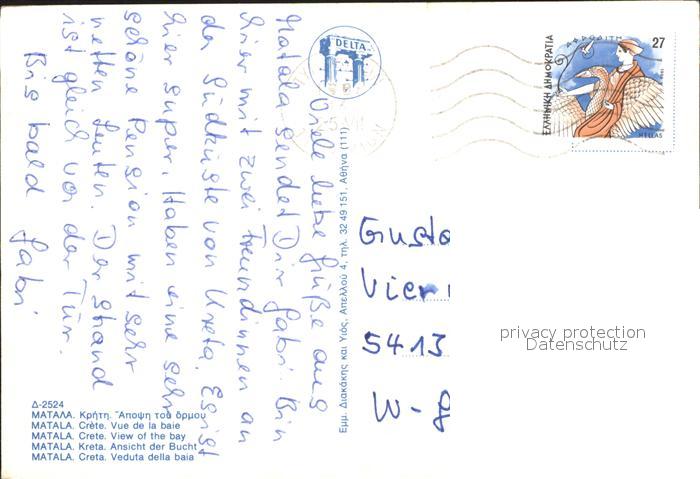 Viele liebe Grüße aus
Matala sendet Dir Gabri. Bin
hier mit zwei Freundinnen an
der Südküste von Kreta. Es ist
hier super. Haben eine sehr
schöne Pension mit sehr
netten Leuten. Der Strand
ist gleich vor der Tür.
Bis bald Gabri
DELTA
ΑΦΡΟΔΙΤΗ
27
ΕΛΛΗΝΙΚΗ ΔΗΜΟΚΡΑΤΙΑ
HELLAS
Εμμ. Διακάκης και Υιός, Απελλού 4, τηλ. 32 49 151, Αθήνα (111)
Gusta
Vier
5413
W-
privacy protection
Datenschutz
Δ-2524
ΜΑΤΑΛΑ. Κρήτη. Ἄποψη τοῦ ὅρμου
MATALA. Crète. Vue de la baie
MATALA. Crete. View of the bay
MATALA. Kreta. Ansicht der Bucht
MATALA. Creta. Veduta della baia